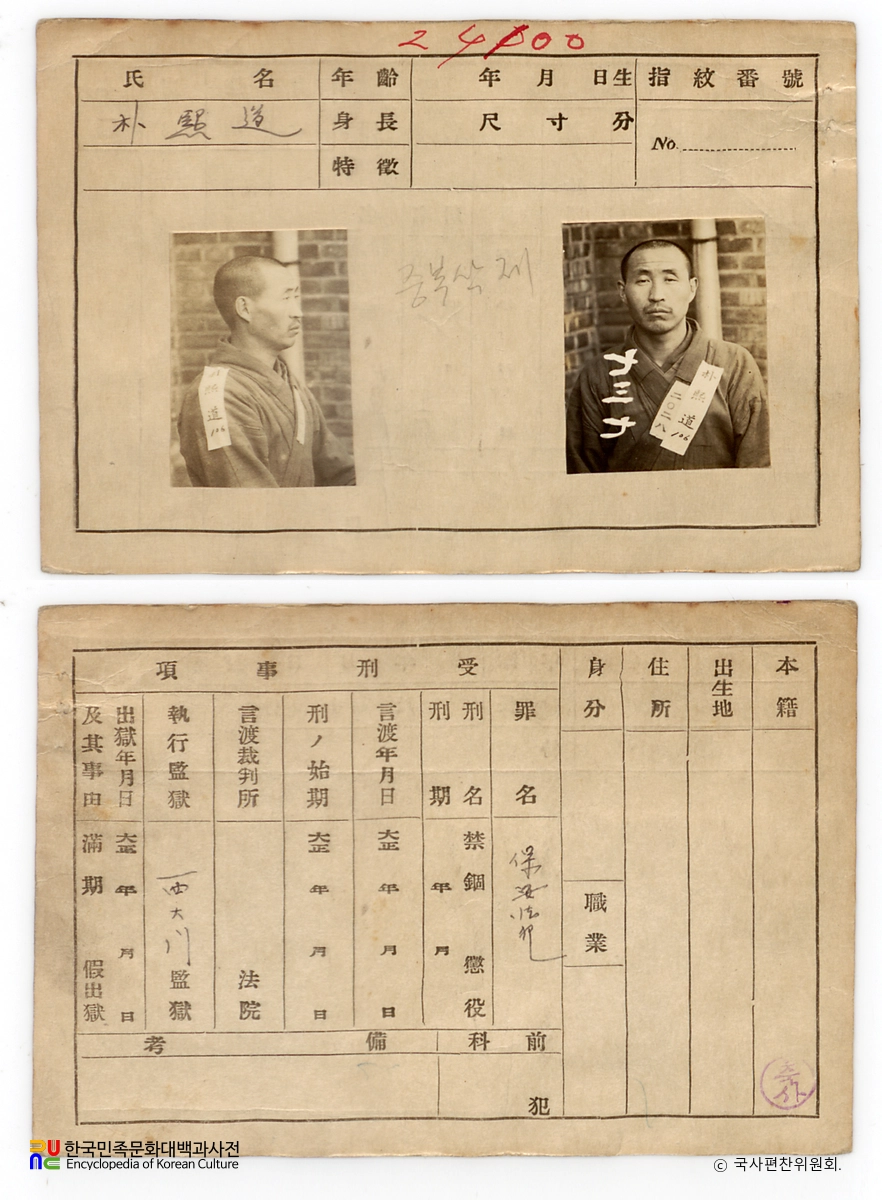 24000
氏名 年齡 年月日生 指紋番號
朴熙道 身長 尺寸分 No.
特徵
중복삭제
朴熙道 106
十三ナ
朴熙道 106
二〇二八
本籍
出生地
住所
身分
職業
受刑事項
罪名 保安法犯
刑名 禁錮 懲役
刑期 年 月
言渡年月日 大正 年 月 日
刑ノ始期 大正 年 月 日
言渡裁判所 法院
執行監獄 西大門監獄
出獄年月日 大正 年 月 日
及其事由 滿期 假出獄
前科 犯
備考
한국민족문화대백과사전
Encyclopedia of Korean Culture
© 국사편찬위원회.